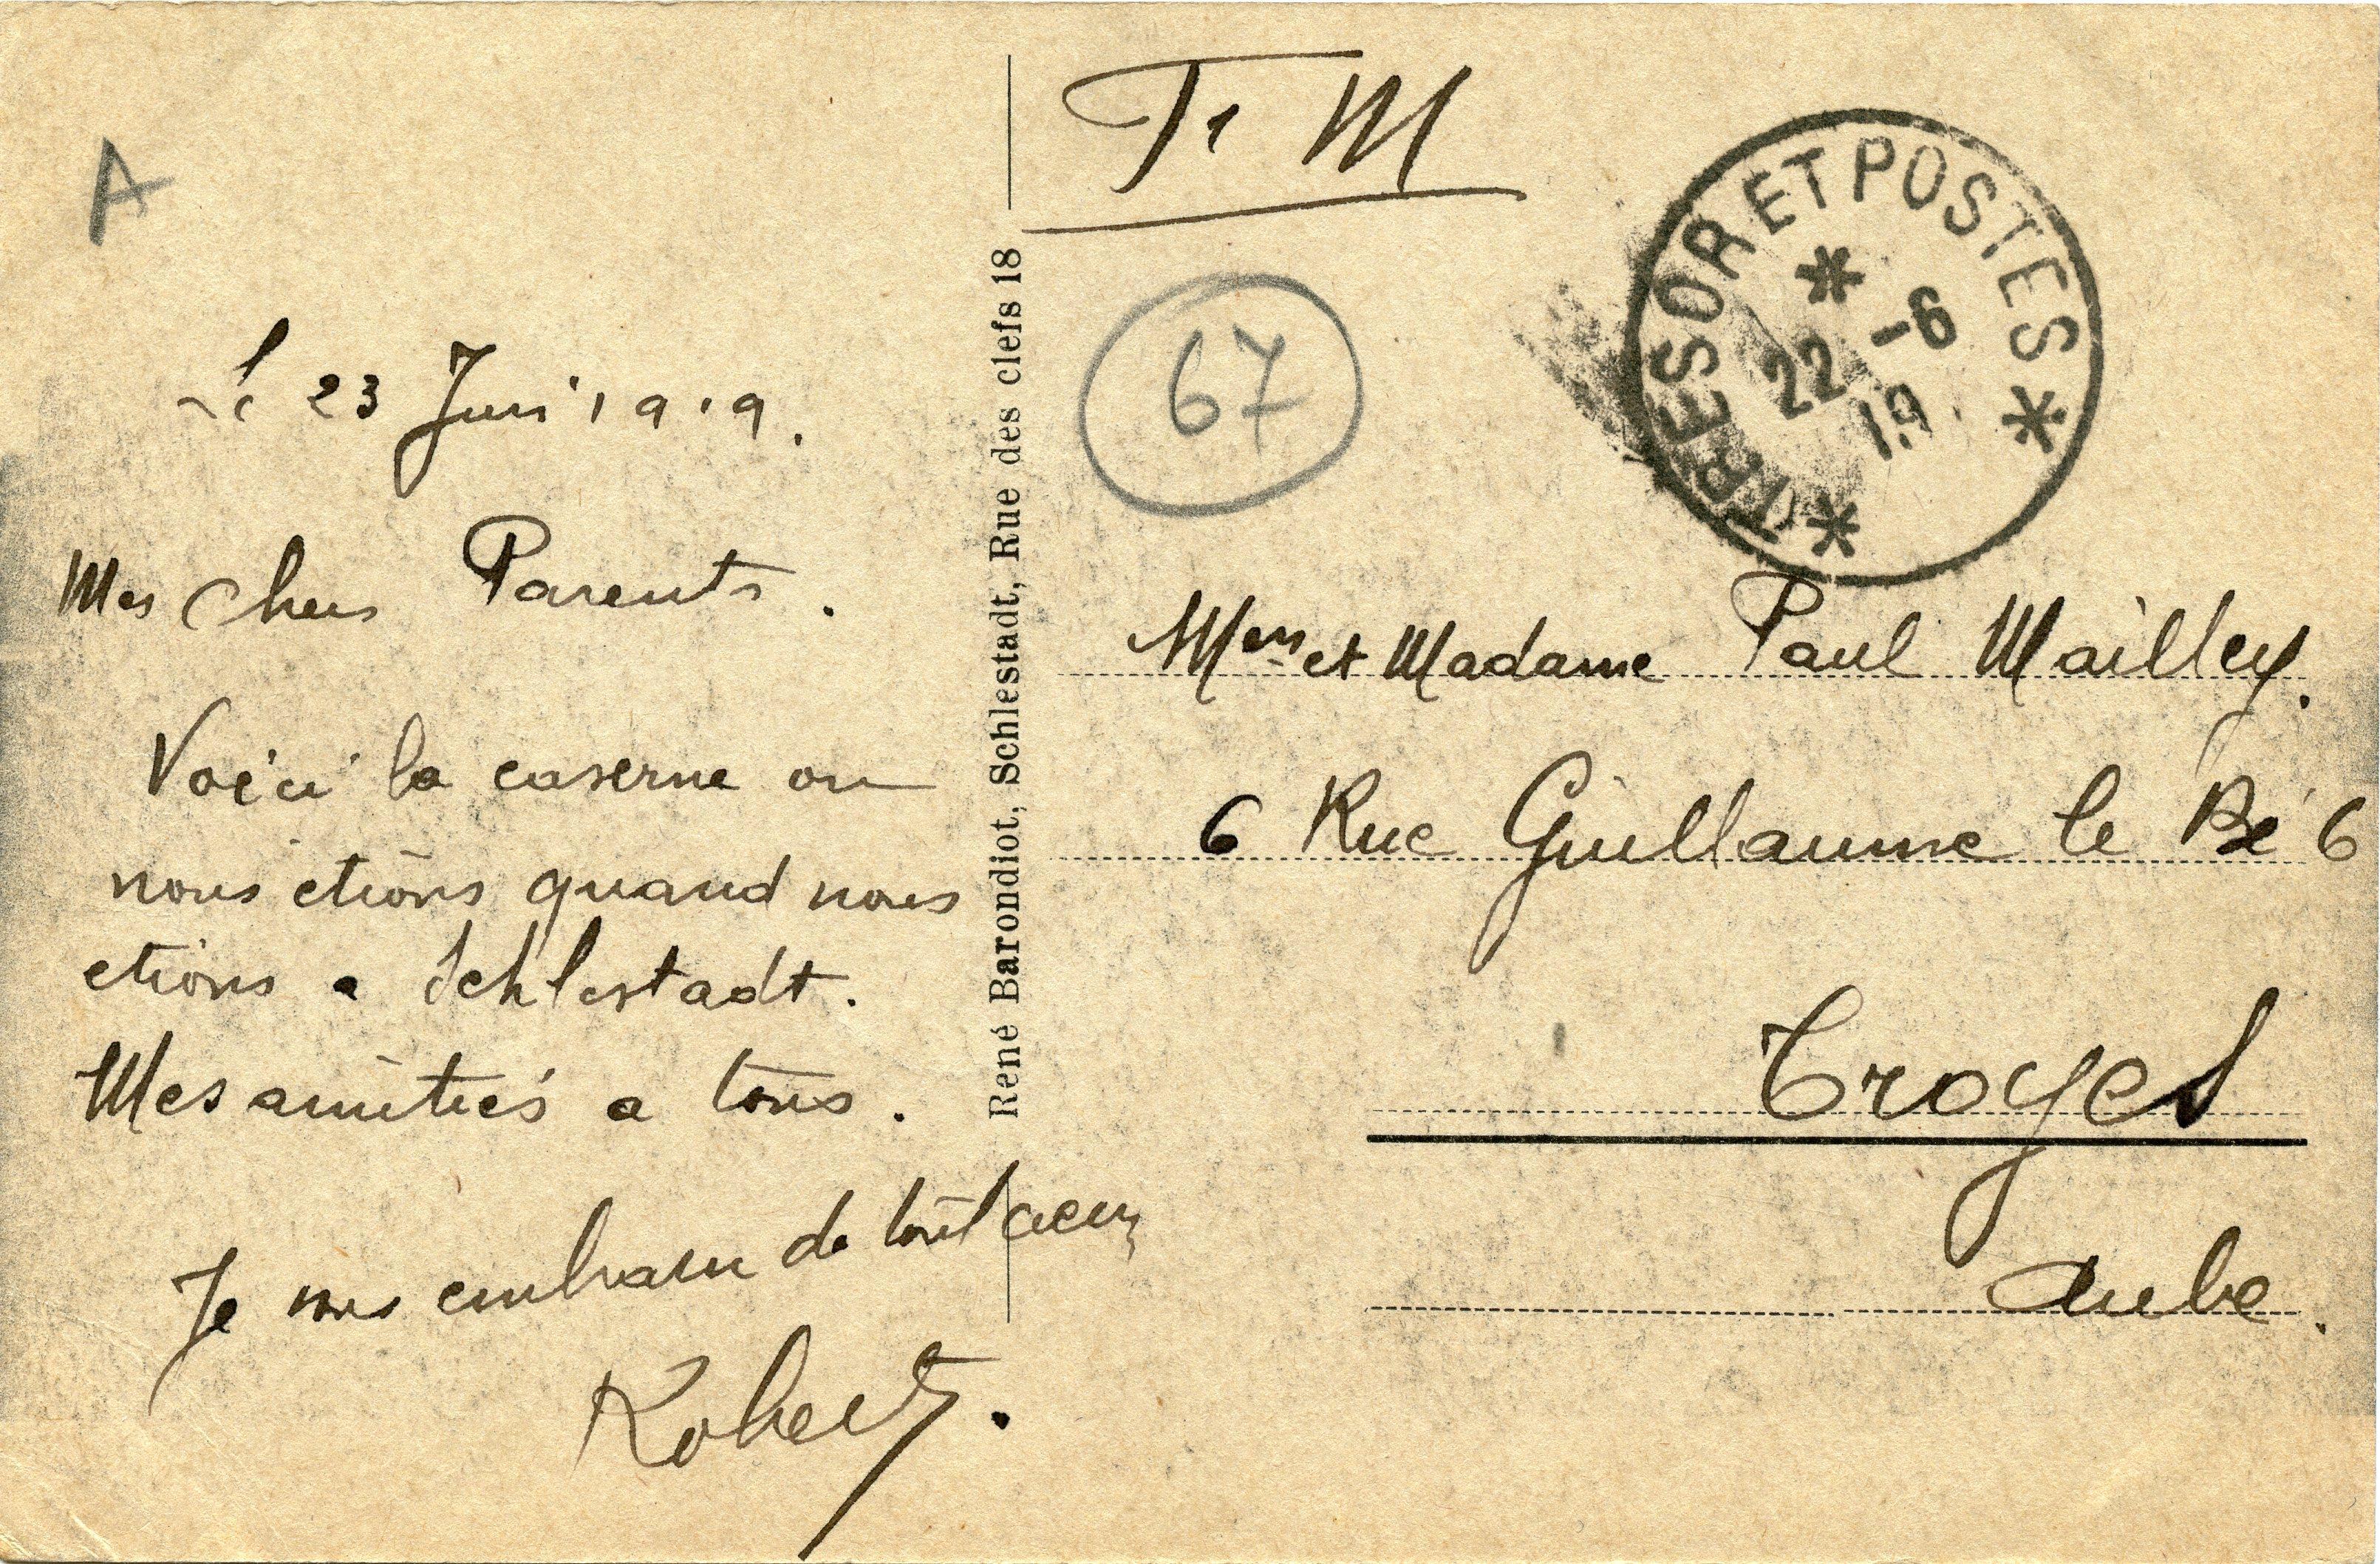 A
Le 23 Juin 1919.
Mes chers Parents.
Voici la caserne ou
nous etions quand nous
etions a Schlestadt.
Mes amitiés a tous.
Je vous embrasse de tout cœur
Robert.
René Barondiot, Schlestadt, Rue des clefs 18
F. M
67
TRESOR ET POSTES
22 -6
19
et Madame Paul Mailley.
6 Rue Guillaume le Bé 6
Troyes
Aube.